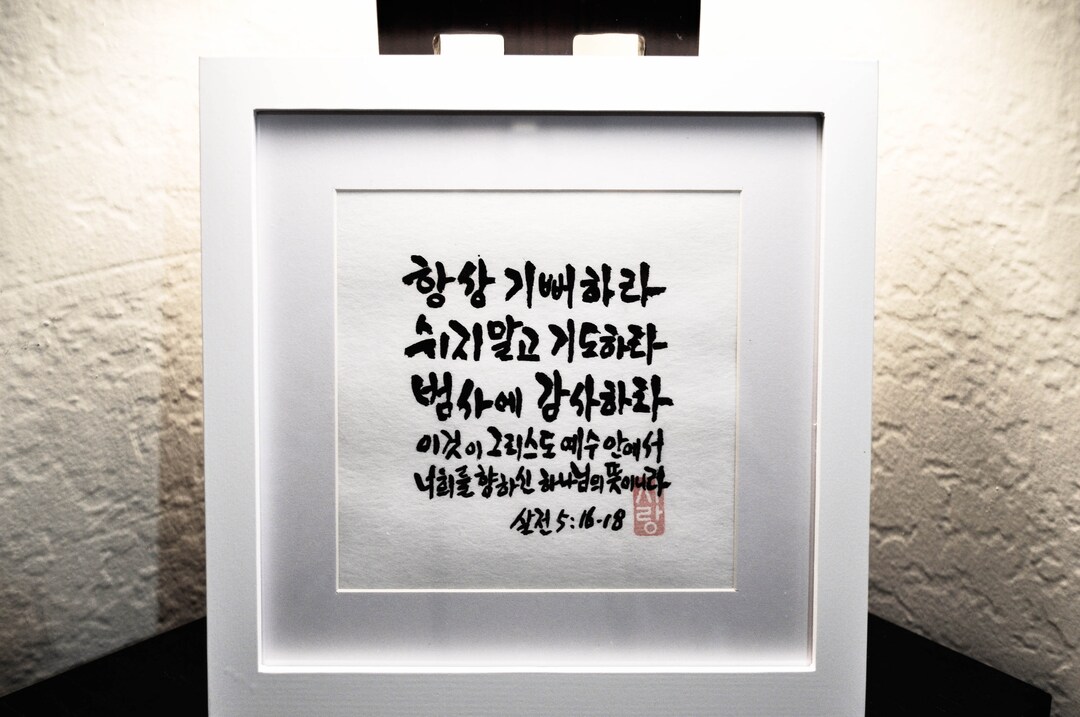 항상 기뻐하라
쉬지말고 기도하라
범사에 감사하라
이것이 그리스도 예수 안에서
너희를 향하신 하나님의 뜻이니라
살전 5:16-18
사랑